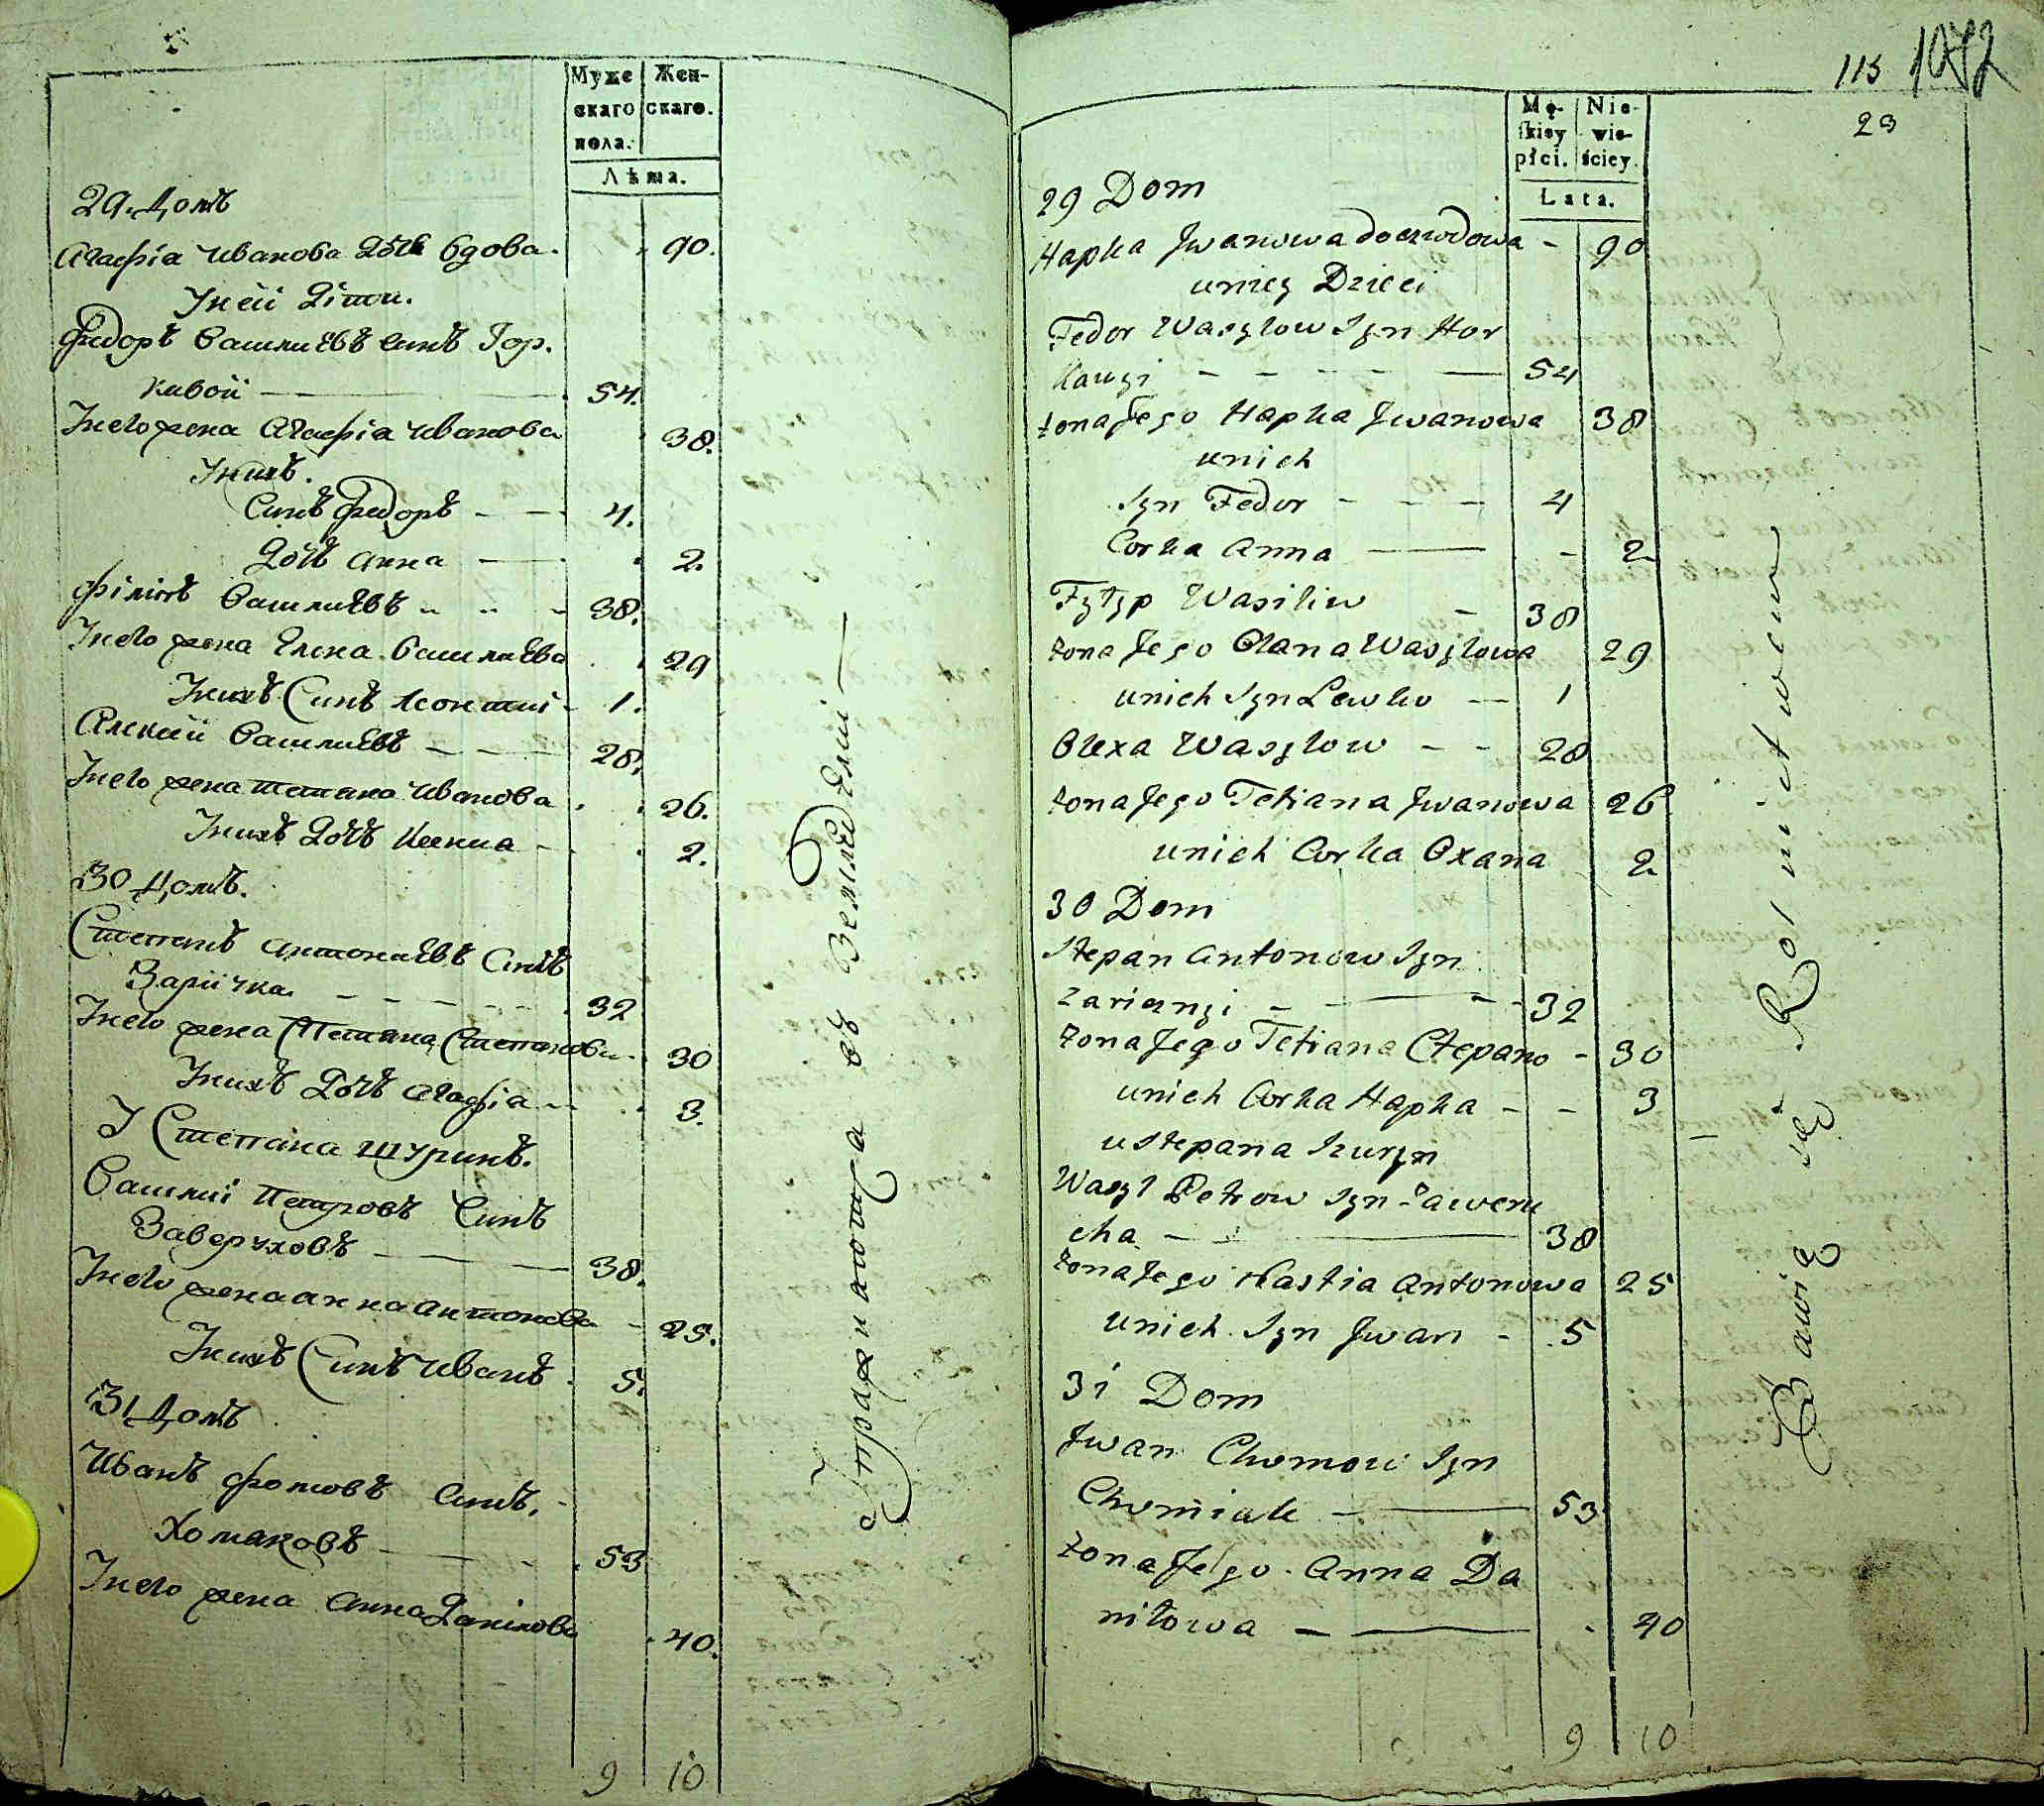 Муже Жен-
скаго скаго.
пола.
Лѣта.
29. Домъ
Агафіа Иванова Дочь вдова. 90.
У неи Діти.
Федоръ Василиевъ Синъ Гор.
кивой 54.
У него жена Агафіа Иванова 38.
У нихъ.
Синъ Федоръ 4.
Дочь Анна 2.
Філіпъ Василиевъ 38.
У него жена Елена Василиева 29
У нихъ Синъ Леонтиі 1.
Алексій Василиевъ 28.
У него жена Тетяна Иванова 26.
У нихъ Дочь Ксения 2.
30 Домъ.
Степанъ Антониевъ Синъ
Зариічка 32
У него жена Тетяна Степанова 30
У нихъ Дочь Агафіа 3.
У Степана Шуринъ.
Василиі Петровъ Синъ
Заверуховъ 38.
У него жена Анна Антонова 25.
У нихъ Синъ Иванъ 5.
31 Домъ
Иванъ Фомовъ Синъ.
Хомяковъ 53
У него жена Анна Данілова 40.
9 10
Упражняютца въ Земледелиі
115 1072
23
Mę- Nie-
skiey wie-
płci. ściey.
Lata.
29 Dom
Hapka Jwanowa docz wdowa - 90
u niey Dzieci
Fedor Wasylow Syn Hor
kawyi 54
żona Jego Hapka Jwanowa 38
u nich
Syn Fedor 4
Corka Anna - 2
Fyłyp Wasiliw 38
żona Jego Olana Wasylowa 29
u nich Syn Lewko 1
Olexa Wasylow 28
żona Jego Tetiana Jwanowa 26
u nich Corka Oxana 2
30 Dom
Stepan Antonow Syn
Zaricznyi 32
żona Jego Tetiana Ctepano - 30
u nich Corka Hapka - - 3
u Stepana Szuryn
Wasyl Petrow Syn Zaweru
cha 38
żona Jego Nastia Antonowa 25
u nich Syn Jwan - 5
31 Dom
Jwan Chomow Syn
Chomiak 53
żona Jego Anna Da
niłowa 40
9 10
Bawią się Rolnictwem